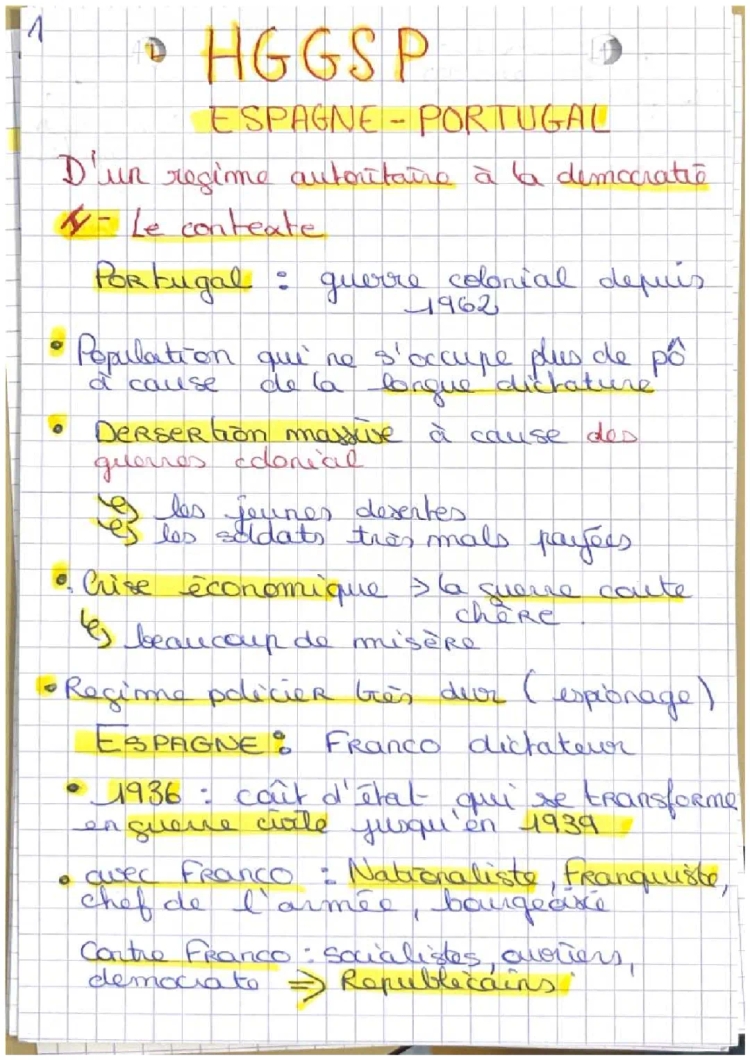 1
HGGSP
ESPAGNE - PORTUGAL
D'un regime autoritaire à la democratie
1 - Le contexte
PORtugal : guerre colonial depuis
1962
• Population qui ne s'occupe plus de pô
à cause de la longue dictature
• DERSERtion massive à cause des
guerres colonial
↳ les jeunes desertes
↳ les soldats très mals payées
• Crise économique → la guerre coute
chère.
↳ beaucoup de misère
• Regime policier très dur (espionage)
ESPAGNE : FRANCO dictateur
• 1936 : coût d'état qui se transforme
en guerre civile jusqu'en 1939
• avec FRANCO : Nationaliste, Franquiste,
chef de l'armée, bourgeoisie
Contre FRANCO : socialistes, ouvriers,
democrate ⇒ Republicains